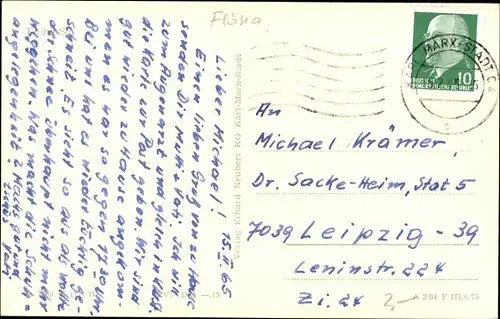 Flöha
Lieber Michael! 15.II.65
Einen lieben Gruß von zu Hause
senden Dir Mutti + Vati. Ich will
zum Augenarzt und gleich in
die Karte zur Post geben. Wir sind
gut wieder zu Hause angekom-
men es war so gegen 17.30 Uhr.
Bei uns hat es wieder tüchtig ge-
schneit. Es sieht so aus als wollte
der Schnee überhaupt nicht mehr
weggehen. Was macht die Schule
Vati
Verlag Erhard Neubert KG Karl-Marx-Stadt
KARL-MARX-STADT C2
10
DEUTSCHE
DEMOKRATISCHE REPUBLIK
An
Michael Krämer
Dr. Sacke-Heim, Stat 5
7039 Leipzig - 39
Leninstr. 224
Zi. 24
2,-
A 3/64 P 111/6/75